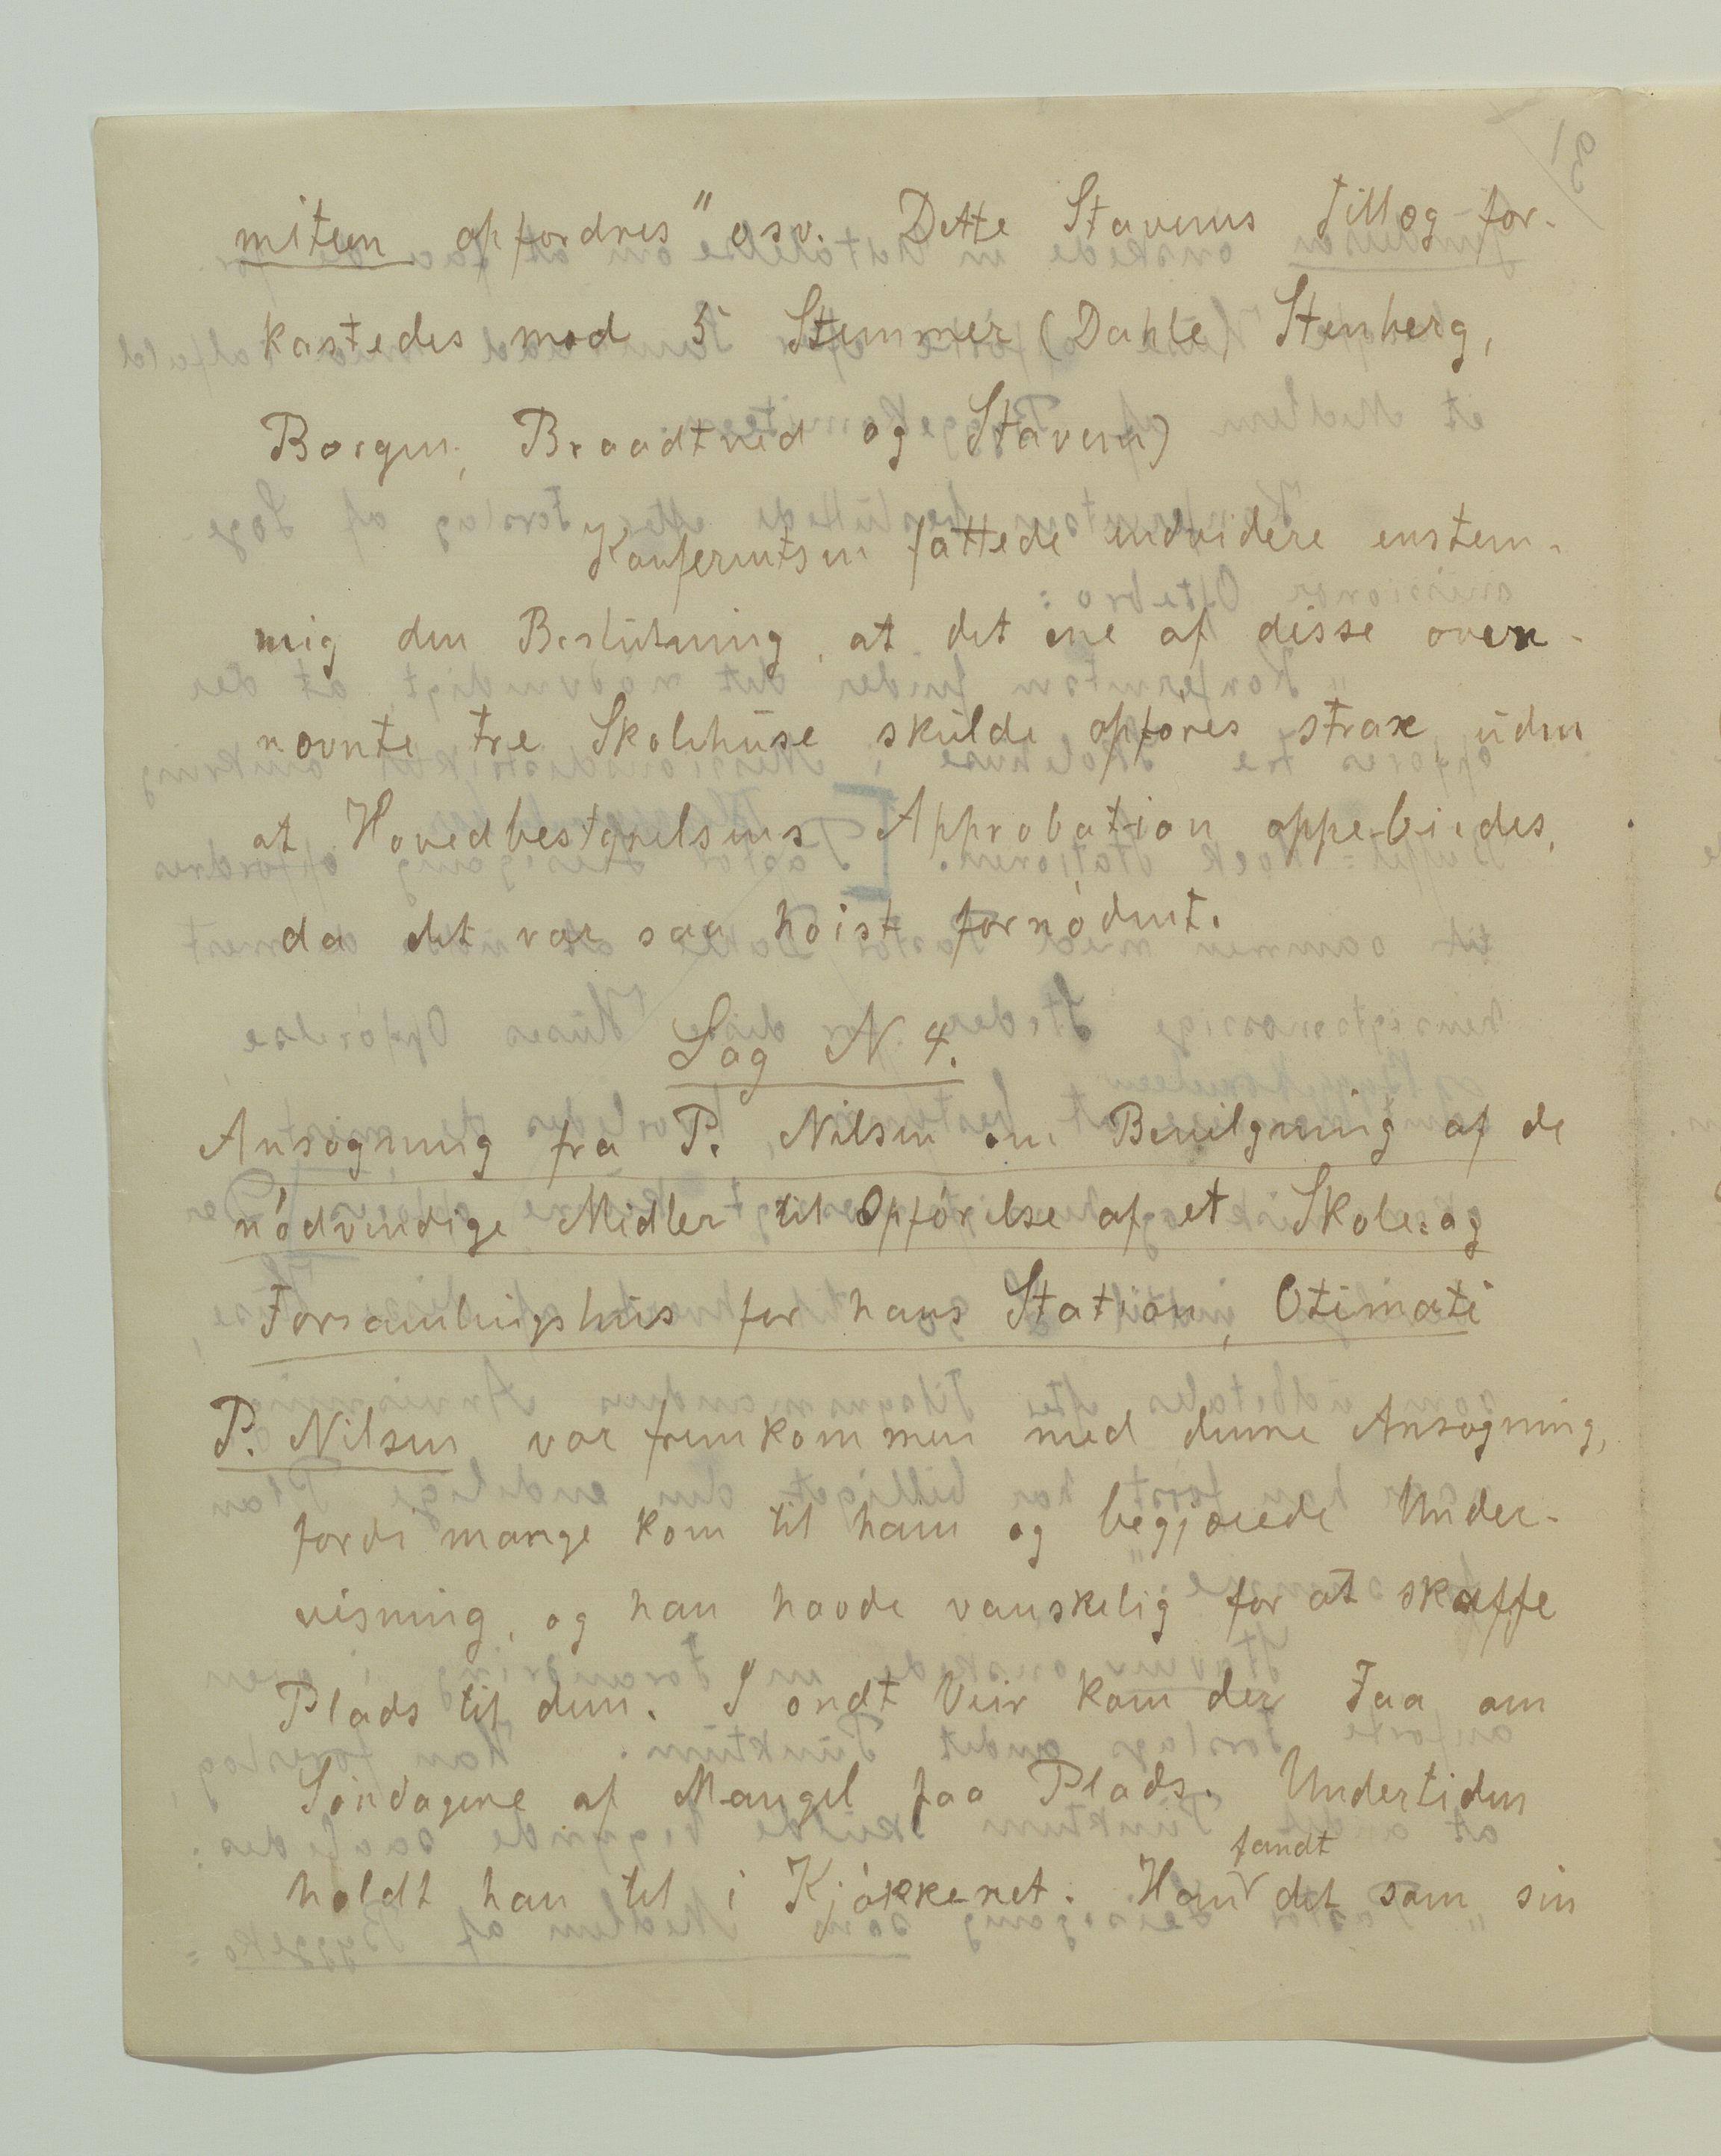 miteen opfordres" osv. Dette Stavems Tillæg for-
kastedes mod 5 Stemmer (Dahle, Stenberg,
Borgen, Braadtved og Stavem)
Konferentsen fattede endvidere enstem-
mig den Beslutning, at det ene af disse oven-
nævnte tre Skolehuse skulde opføres strax uden
at Hovedbestyrelsens Approbation oppebiedes,
da det var saa høist fornødent.
Sag N. 4.
Ansøgning fra P. Nilsen om Bevilgning af de
nødvendige Midler til Opførelse af et Skole= og
Forsamlingshus for hans Station, Otimati
P. Nilsen var fremkommen med denne Ansøgning,
fordi mange kom til ham og begjærede Under-
visning, og han havde vanskelig for at skaffe
Plads til dem. I ondt Veir kom der Faa om
Søndagene af Mangel paa Plads. Undertiden
holdt han til i Kjøkkenet. Han fandt det som sin